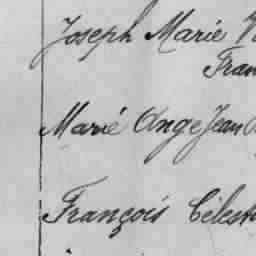 Joseph Marie
Fran
Marie Ange Jean
François Célest